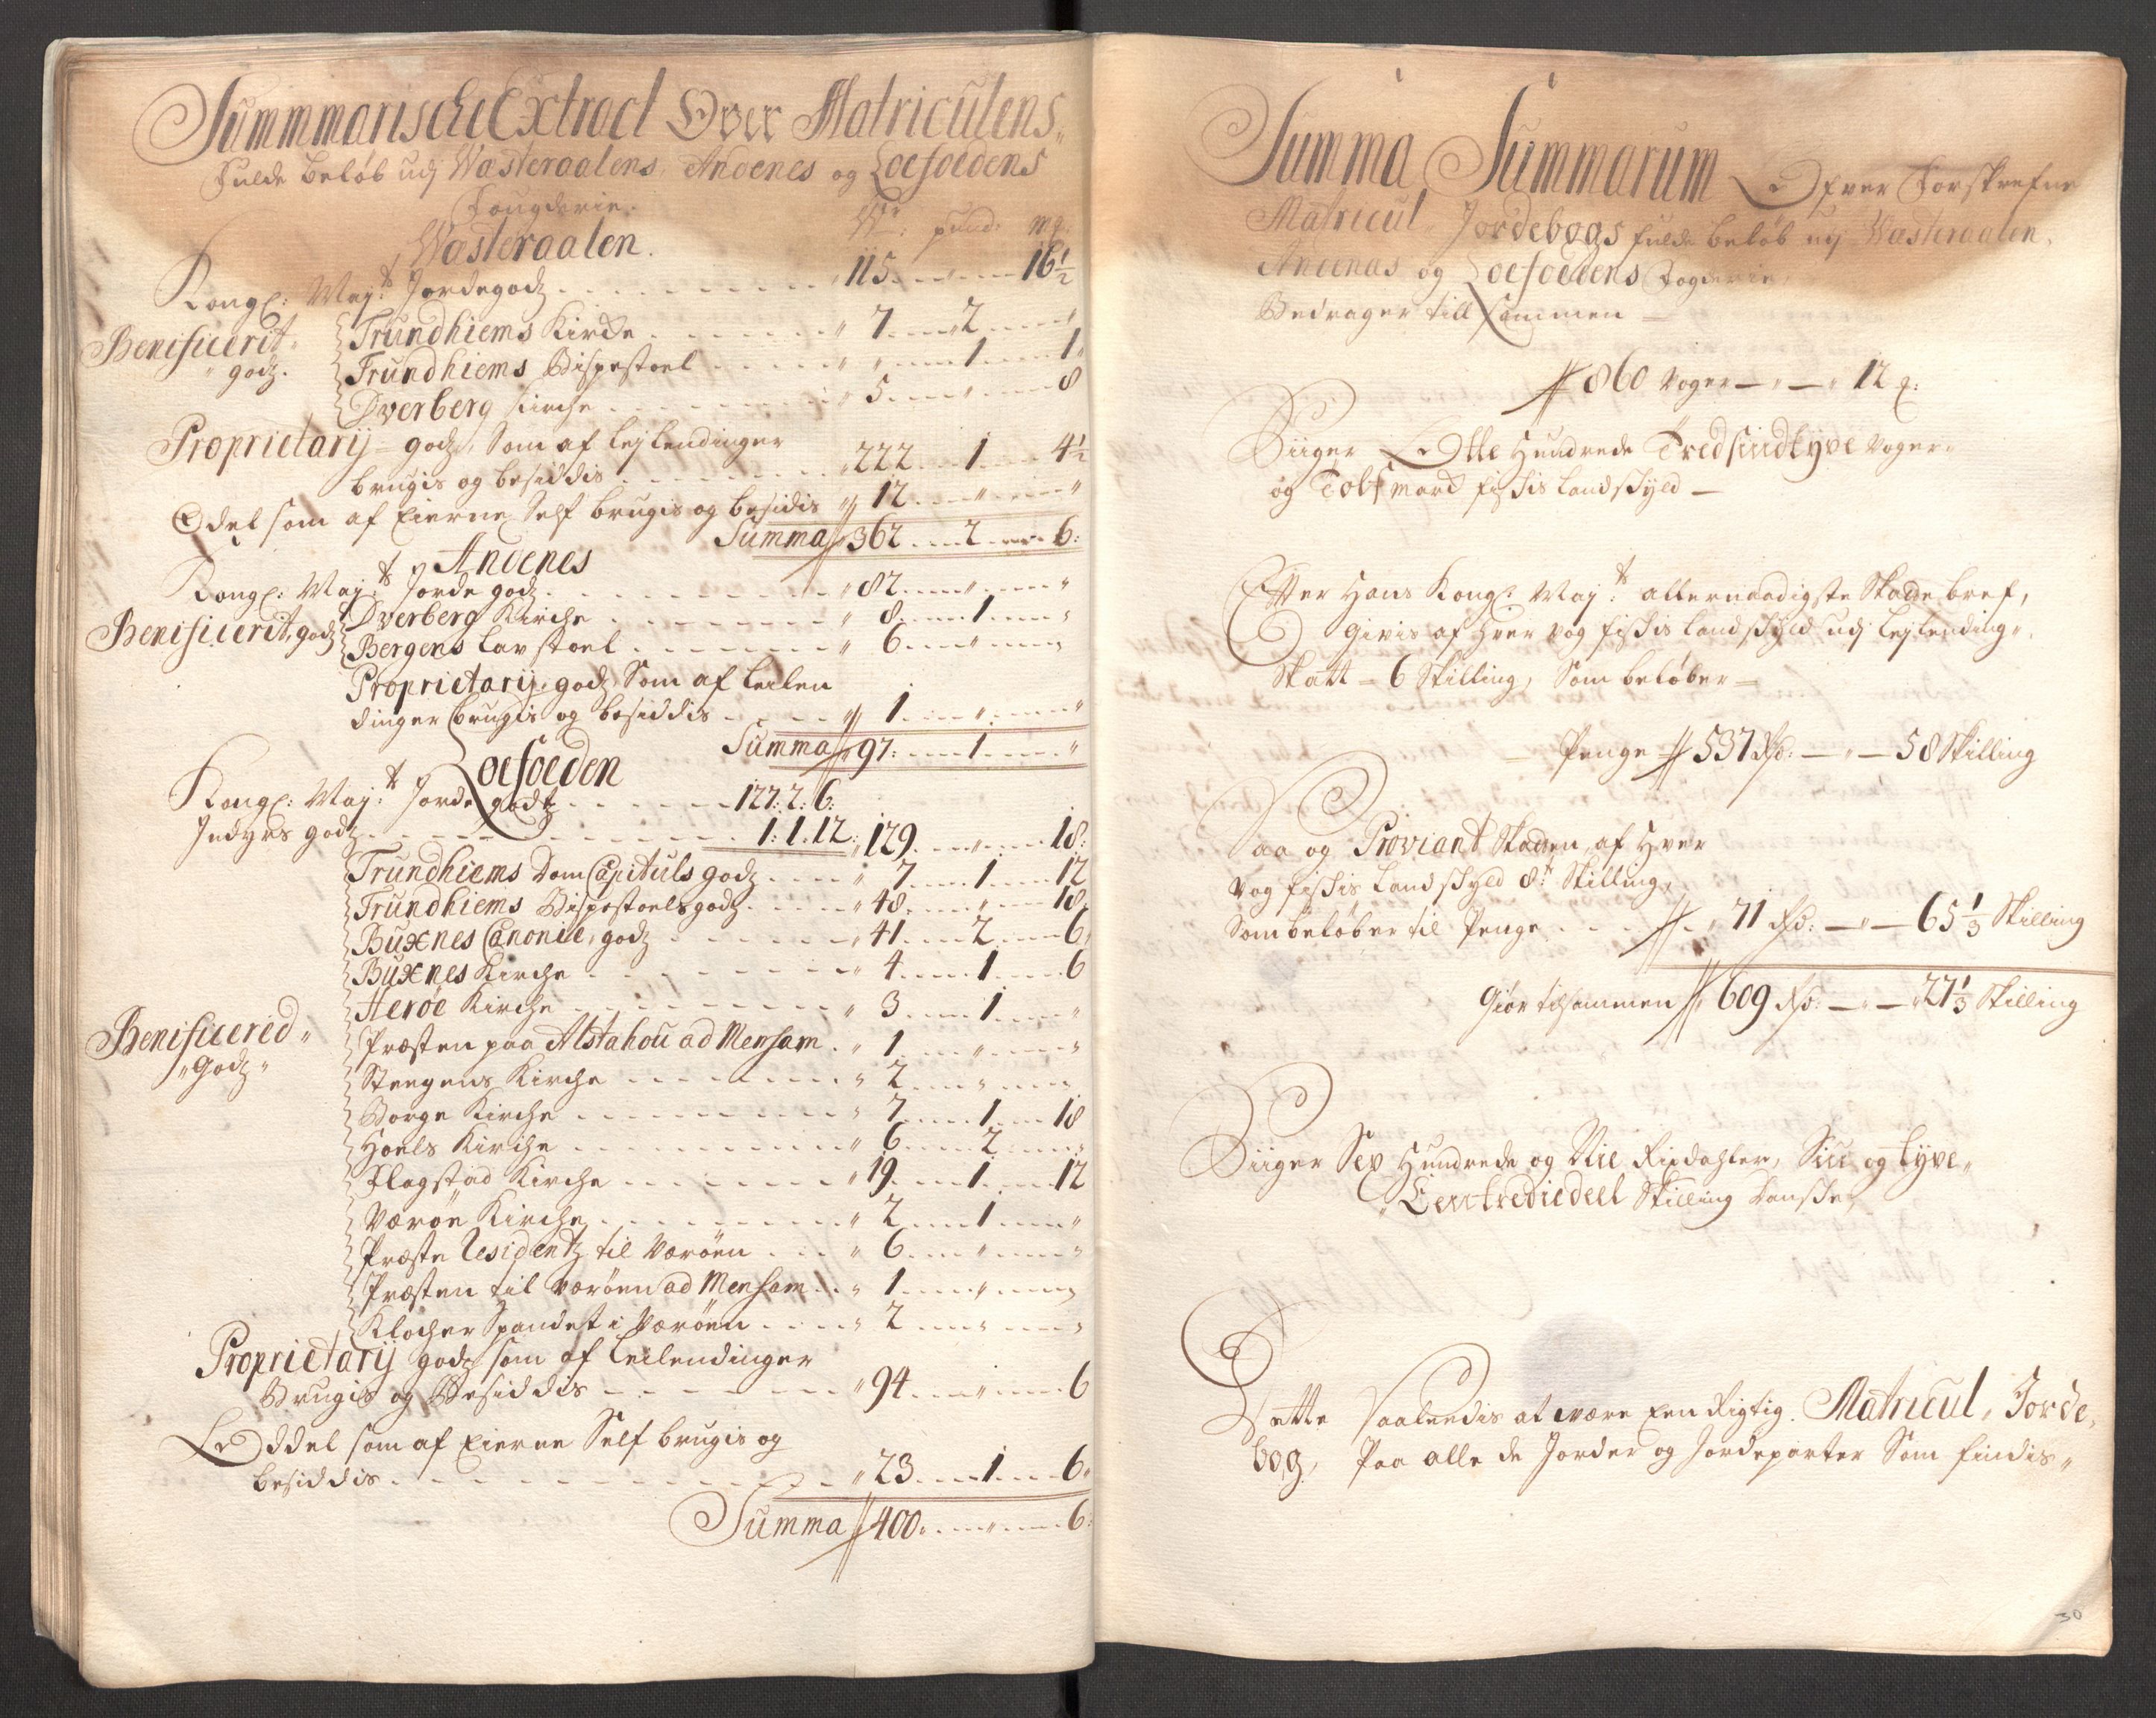 Summmarische Extract Over Matriculens
fulde beløb udj Wasteraalens, Andenes og Loefoedens
Fougderie.
Wasteraalen. W: pund: mg:
Kongl: Maj:ts Jordegodz 115 " 16½
Benificerit godz. Trundhiems Kircke " 7 2 "
Trundhiems Bispestoel " " 1 1
Dverberg Kirche " 5 " 8
Proprietarij godz, Som af lejlendinger
brugis og besiddis " 222 1 4½
Odel som af Eierne Self brugis og besidis " 12 " "
Summa 362 2 6:
Andenes
Kongl: Maj:ts Jorde godz " 82 " "
Benificerit, godz Dverberg Kirche " 8 1 "
Bergens Lavstoel " 6 " "
Proprietarij godz Som af Leilen
dinger brugis og besiddis " 1 " "
Summa 97: 1 "
Loefoeden
Kongl: Maj:ts Jorde godtz 127: 2: 6:
Indyrs godz 1: 1. 12: " 129 " 18:
Trundhiems Dom Capituls godz " 7 1 12
Trundhiems Bispestoels godz " 48 " 18
Buxnes Canonie, godz " 41 2 6
Buxnes Kirche " 4 1 6
Herøe Kirche " 3 1 "
Benificered Præsten paa Alstahou ad Mensam " 1 " "
"Godz" Steegens Kirche " 2 " "
Borge Kirche " 7 1 18
Hoels Kirche " 6 2 "
Flagstad Kirche " 19 1 12
Værøe Kirche " 2 1 "
Præste Residentz til Værøen " 6 " "
Præsten til værøen ad Mensam " 1 " "
Klocher Spandet i Værøen " 2 " "
Proprietarij godz som af Leilendinger
Brugis og Besiddis " 94 " 6
Oddel som af Eierne Self brugis og
besiddis " 23 1 6
Summa 400: " 6:
Summa Summarum Ofver Forskrefne
Matricul Jordebogs fulde beløb udj Wasteraalen,
Andenæs og Loefoedens Fogderie,
Bedrager till sammen
860 Voger " 12 :
Siiger Otte Hundrede Tredsindtyve Voger
og Tolf mark fiskis Landskyld
Efter Hans Kongl: Maj:ts allernaadigste Skatte bref,
Givis af hver vog fiskis landskyld udj Lejlending
Skatt 6 Skilling, Som beløber
Penge 537 Rd: " 58 Skilling
Saa og Proviant Skatten, af Hver
Vog fiskis Landskyld 8te Skilling,
Som beløber til Penge " 71 Rd: " 65⅓ Skilling
Giør tilsammen 609 Rd: " 27⅓ Skilling
Siiger Sex Hundrede og Nie Rixdahler, Siu og tyve
Een trediedeel Skilling Danske,
Dette Saaledis at være Een Rigtig Matricul, Jorde
bog, Paa alle de Jorder og Jordeparter Som findis
30